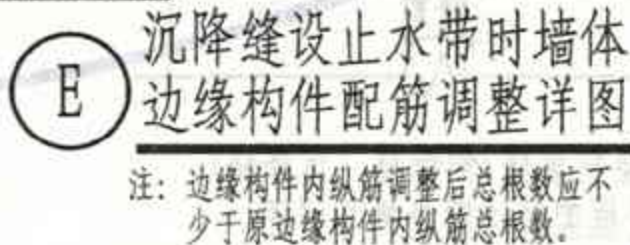 E
沉降缝设止水带时墙体
边缘构件配筋调整详图
注：边缘构件内纵筋调整后总根数应不
少于原边缘构件内纵筋总根数。